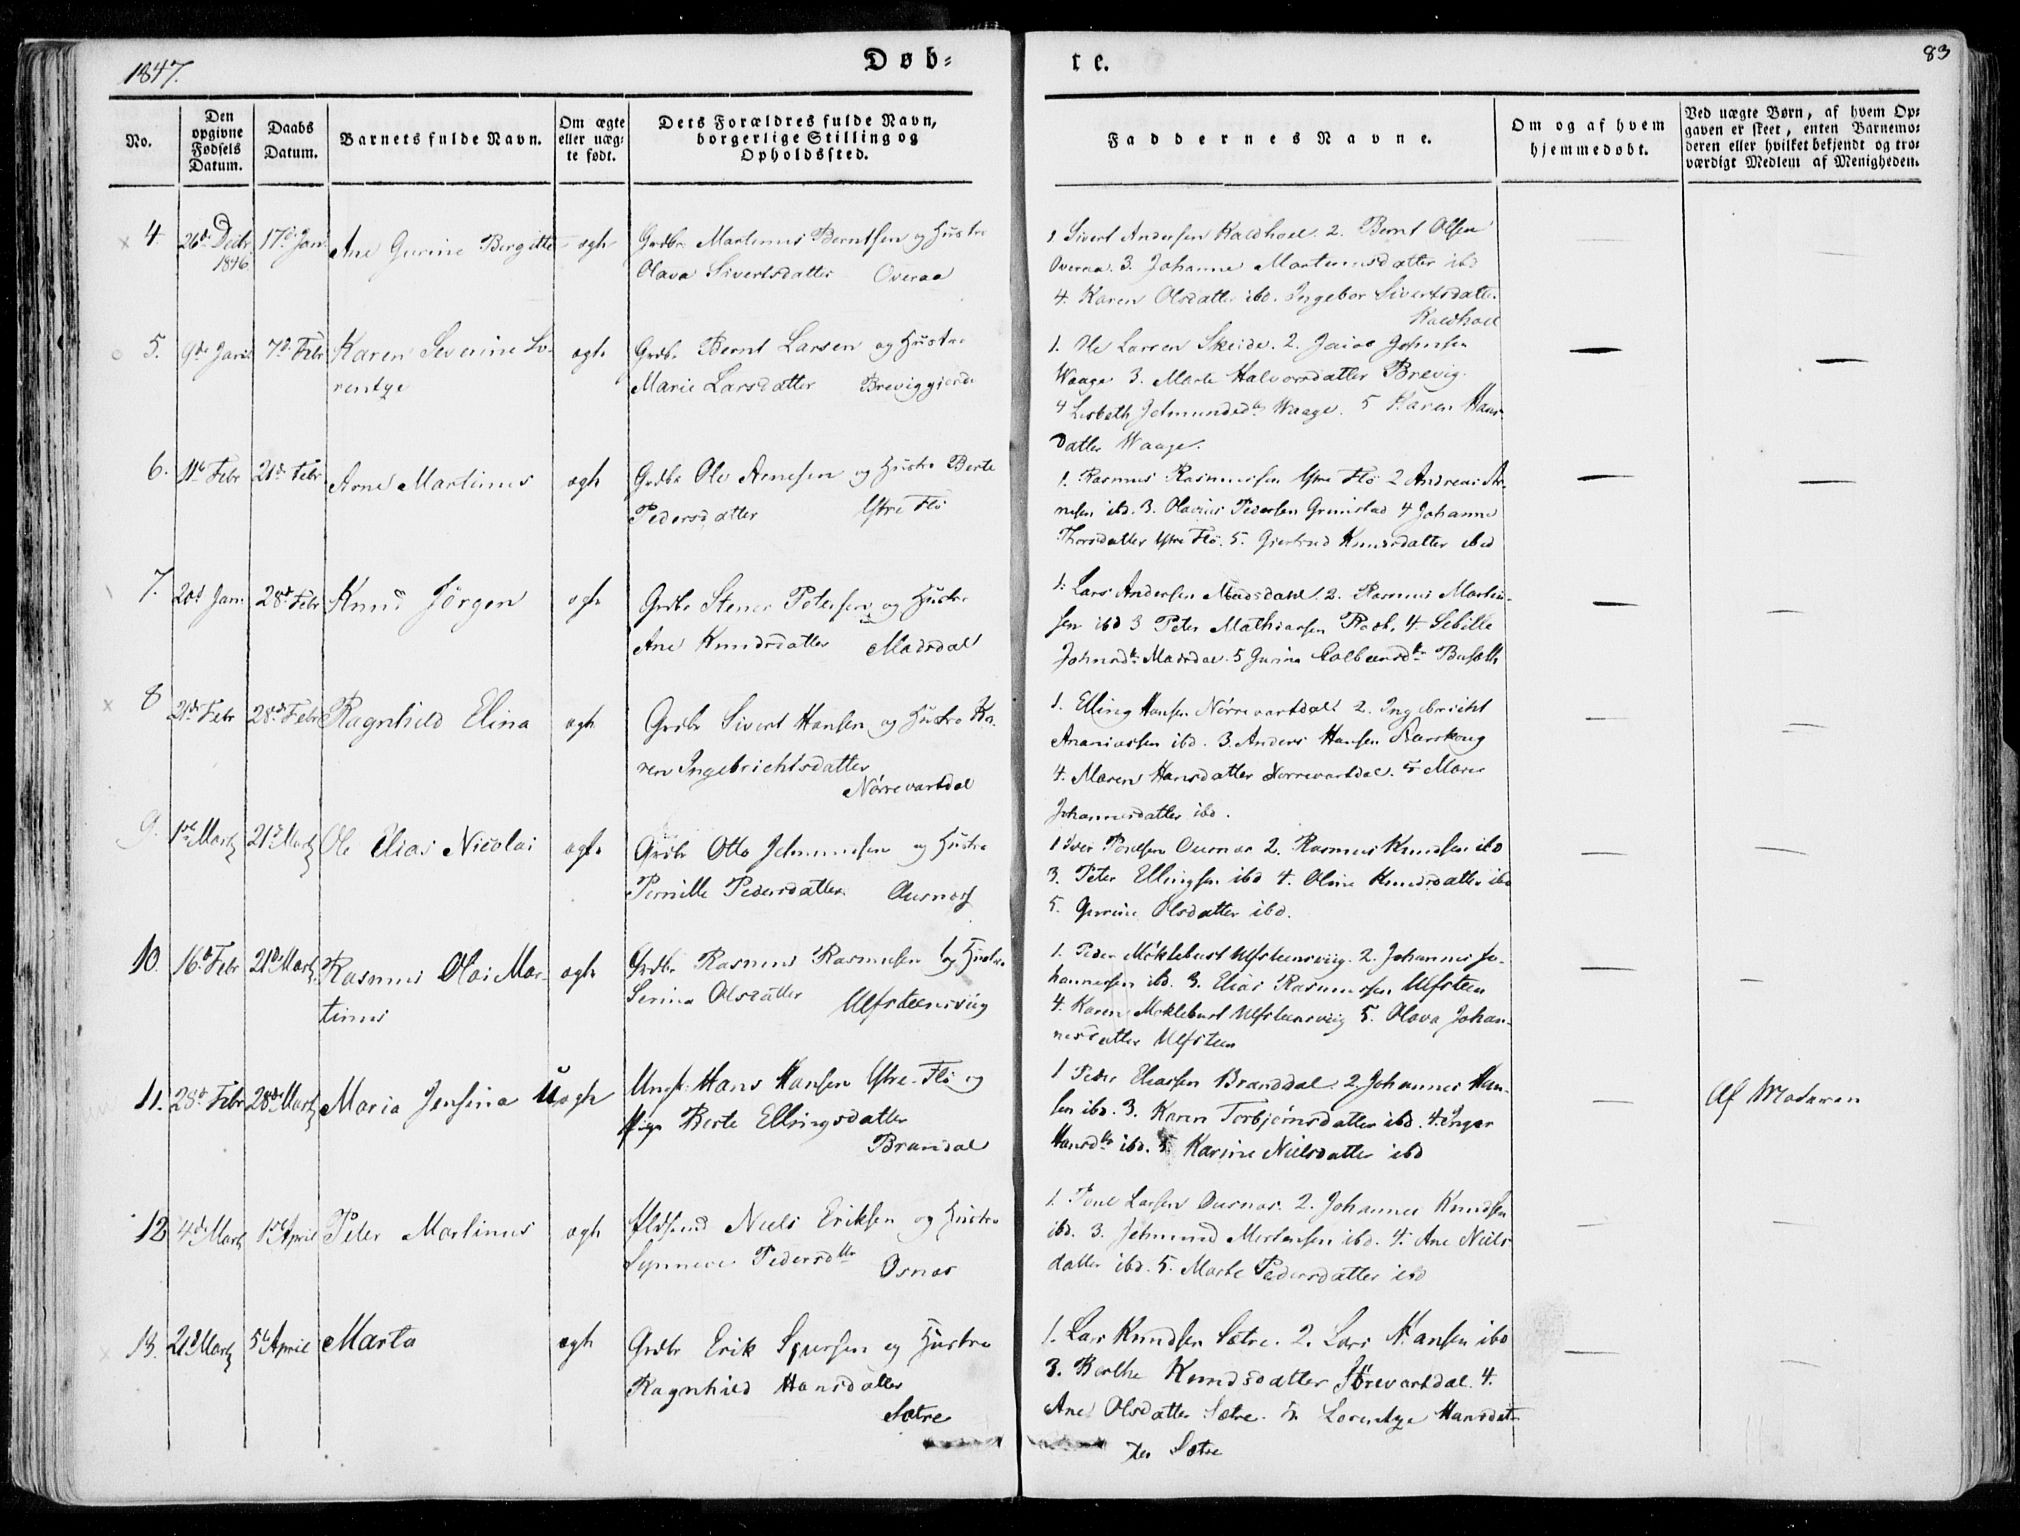 1847.
Døb=
te.
83
No.
Den opgivne Fødsels Datum.
Daabs Datum.
Barnets fulde Navn.
Om ægte eller uæg- te født.
Dets Forældres fulde Navn, borgerlige Stilling og Opholdssted.
Faddernes Navne.
Om og af hvem hjemmedøbt.
Ved uægte Børn, af hvem Op- gaven er skeet, enten Barnemo- deren eller hvilket bekjendt og tro- værdigt Medlem af Menigheden.
4. 26de Decbr 1846 17de Jan Ane Gurine Birgitte ægte
Grdbr Martinus Berntsen og Hustro
Olava Sivertsdatter Overaa
1. Sivert Andersen Kaldhoel. 2. Bernt Olsen
Overaa. 3. Johanne Martinusdatter ibd
4. Karen Olsdatter ibd. Ingebor Sivertsdatter
Kaldhoel
5. 9de Jan 7de Febr Karen Severine Lo-
rentze
ægte
Grdbr Bernt Larsen og Hustro
Marie Larsdatter Breviggjerde
1. Ole Larsen Skeide. 2. Johnsen
Waage 3. Marte Halvorsdatter Brevig.
4 Lisbeth Jetmundsdtr Waage. 5 Karen Hans-
datter Waage.
6. 11te Febr 21de Febr Arne Martinus ægte
Grdbr Ole Arnesen og Hustro Berte
Pedersdatter Ytre Flö
1. Rasmus Rasmussen Ytre Flö 2 Andreas Ar-
nesen ibd. 3. Olavus Pedersen Grimstad 4 Johanne
Thorsdatter Ytre Flö. 5. Giertrud Knudsdatter ibid
7. 20de Jan. 28de Febr Knud Jörgen ægte
Grdbr Stener Petersen og Hustro
Ane Knudsdatter Madsdal
1. Lars Andersen Madsdahl. 2. Rasmus Martin-
sen ibd 3 Peter Mathiassen 4. Sebille
Johnsdtr Madsdal. 5 Gurine
8 21de Febr 28de Febr Ragnhild Elina ægte
Grdbr Sivert Hansen og Hustro Ka-
ren Ingebrichtsdatter
Nörrevartdal
1. Elling Hansen Nörrevartdal 2. Ingebricht
Ananiassen ibd. 3. Anders Hansen
4. Maren Hansdatter Nörrevartdal. 5 Maren
Johannesdatter ibd.
9. 1ste Marts 21de Marts Ole Elias Nicolai ægte
Grdbr Otto Jetmundsen og Hustro
Pernille Pedersdatter Ousnæs
1 Iver Poulsen Ousnæs 2. Rasmus Knudsen ibd
3. Peter Ellingsen ibd 4. Oline Knudsdatter ibd
5. Gurine Olsdatter ibd.
10. 16de Febr 21de Marts Rasmus Olai Mar-
tinus
ægte
Grdbr Rasmus Rasmussen og Hustro
Serina Olsdatter Ulfsteensviig
1. Peder Möklebust Ulfsteensviig. 2. Johannes Jo-
hannessen ibd. 3. Elias Rasmussen Ulfsteen
4. Karen Möklebust Ulfsteensviig 5. Olava Johan-
nesdatter Ulfsteen
11. 28de Febr 28de Marts Maria Jensina uægte
Ungk. Hans Hansen Ytre-Flö og
Pige Berte Ellingsdatter
Brandal
1 Peder Eliassen Branddal. 2. Johannes Han-
sen ibd. 3. Karen Torbjørnsdatter ibd. 4. Inger
Hansdtr ibd. 5. Karine Nielsdatter ibd
Af Moderen
12 4de Marts 1ste April Peter Martinus ægte
Niels Eriksen og Hustro
Synneve Pedersdtr Osnæs
1. Poul Larsen Ousnæs. 2. Johannes Knudsen
ibd. 3. Jetmund Mortensen ibd. 4. Ane Niels-
datter ibd. 5. Marte Pedersdatter ibd
13. 21de Marts 5te April Marta ægte
Grdbr Erik Syversen og Hustro
Ragnhild Hansdatter
Sætre
1. Lars Knudsen Sætre. 2. Lars Hansen ibd
3. Berthe Knudsdatter Sörevartdal. 4.
Ane Olsdatter Sætre. 5. Lorentze Hansdat-
ter Sætre